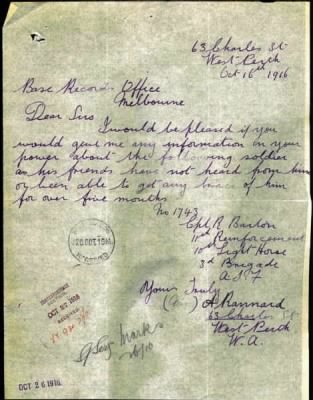 63 Charles St
West Perth
Oct 16th 1916
Base Records Office
Melbourne
Dear Sirs
I would be pleased if you
would give me any information in your
power about the following soldier
as his friends have not heard from him
or been able to get any trace of him
for over five months
No 1743
Cpl R Burton
11th Reinforcement
10th Light Horse
3rd Brigade
A I F
Yours Truly
A Rannard
63 Charles St
West Perth
W.A.
OCT 26 1916